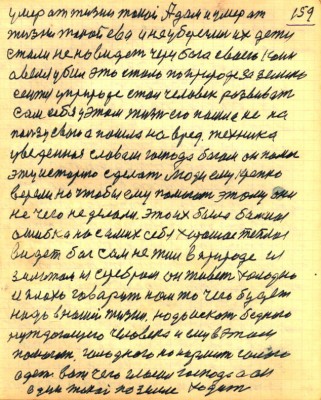 159
умер от жизни такой Адам и умер от
жизни такой Ева и не уберегли их дети
стали ненавидеть через бога своего Каин
Авеля убил это стало по природе за землю
у природе стал человек развивать
сам себя у этом жизнь его пошла не на
пользу свою а пошла на вред. техника
уведенная словам господа богом он помог
эту историю сделать люди ему крепко
верили но чтобы ему помогат этому они
не чего не делали. этоих была бажная
ошибка на самих себя хорошая теплая
видет бог сам не жил в природе
золотом и серебром он живет холодно
и плохо говорит нам то чего будет
надь в нашей жизни. надо искат бедного
нуждающего человека и ему в этом
помогат. голодного накормит голого
одет. вот чего гласил господа а он
один такой по земле ходит